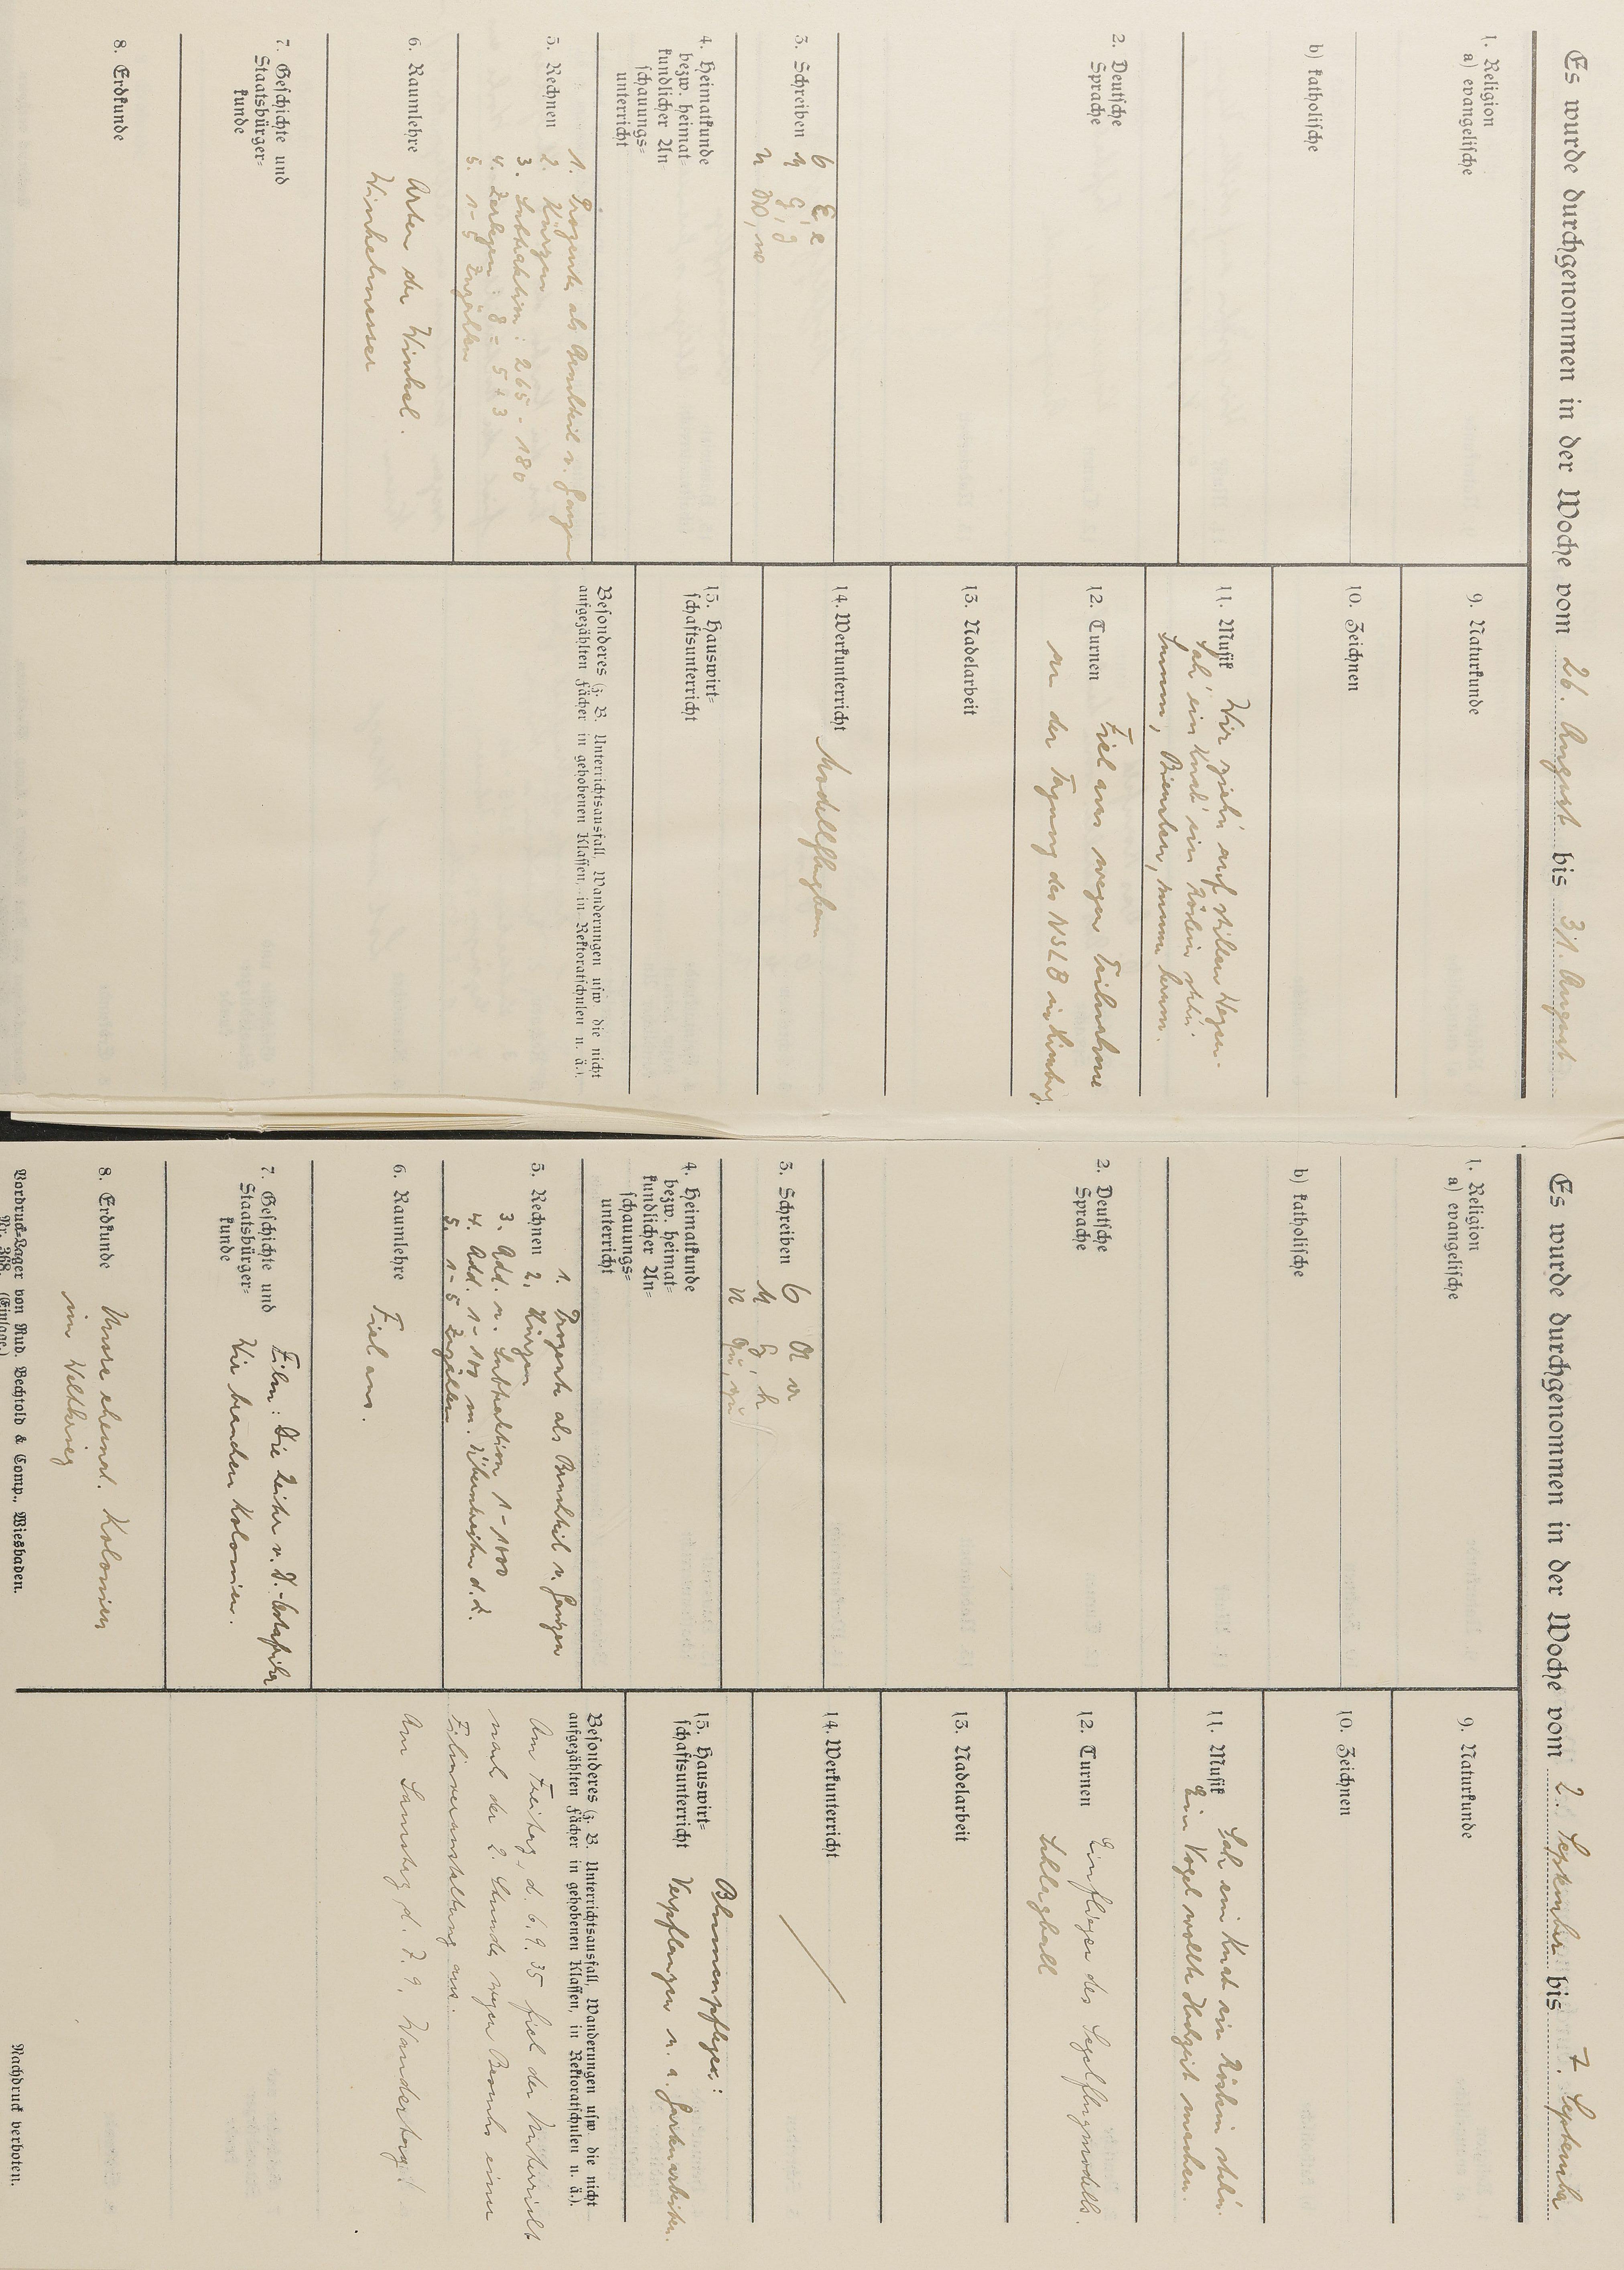 Es wurde durchgenommen in der Woche vom 26. August bis 31. August
1. Religion
a) evangelische
b) katholische
2. Deutsche
Sprache
3. Schreiben 6 E, e
4 G, g
2
4. Heimatkunde
bezw. heimat-
kundlicher An-
schauungs-
unterricht
5. Rechnen
1. Prozente als Bruchteil v. Ganzen
2. Kürzen
3. Subtraktion: 265 - 180
4. Zerlegen: 8 = 5 + 3
5. 1-5 Zuzählen
6. Raumlehre Arten der Winkel.
Winkelmesser
7. Geschichte und
Staatsbürger-
kunde
8. Erdkunde
9. Naturkunde
10. Zeichnen
11. Musik Wir zieh'n auf stillen Wegen.
Sah' ein Knab' ein Röslein steh'n
Summ, Bienchen, summ herum.
12. Turnen Fiel aus wegen Teilnahme
an der Tagung des NSLB in
13. Nadelarbeit
14. Werkunterricht Modellflugbau
15. Hauswirt-
schaftsunterricht
Besonderes (z. B. Unterrichtsausfall, Wanderungen usw. die nicht
aufgezählten Fächer in gehobenen Klassen, in Rektoratschulen u. ä.).
Es wurde durchgenommen in der Woche vom 2. September bis 7. September
1. Religion
a) evangelische
b) katholische
2. Deutsche
Sprache
3. Schreiben 6
4 h
2
4. Heimatkunde
bezw. heimat-
kundlicher An-
schauungs-
unterricht
5. Rechnen
1. Prozente als Bruchteil v. Ganzen
2. Kürzen
3. Add. u. Subtraktion 1-1000
4. Add. 1-100 m. Überschreiten d. Z.
5. 1-5 Zuzählen
6. Raumlehre Fiel aus.
7. Geschichte und
Staatsbürger-
kunde
Film: Die Reiter v. D.-Ostafrika
Wir brauchen Kolonien.
8. Erdkunde Unsre ehemal. Kolonien
im Weltkrieg
9. Naturkunde
10. Zeichnen
11. Musik Sah ein Knab ein Röslein steh'n.
Ein Vogel wollte Hochzeit machen.
12. Turnen Einfliegen des Segelflugmodells.
Schlagball
13. Nadelarbeit
14. Werkunterricht
15. Hauswirt-
schaftsunterricht
Blumenpflege:
Verpflanzen u. a. Gartenarbeiten.
Besonderes (z. B. Unterrichtsausfall, Wanderungen usw. die nicht
aufgezählten Fächer in gehobenen Klassen, in Rektoratschulen u. ä.).
Am Freitag, d. 6. 9. 35 fiel der Unterricht
nach der 2. Stunde wegen Besuchs einer
Filmveranstaltung aus.
Am Samstag d. 7. 9. Wandertag!
Vordruck-Lager von Rud. Bechtold & Comp., Wiesbaden.
Nr. 368. (Einlage.)
Nachdruck verboten.